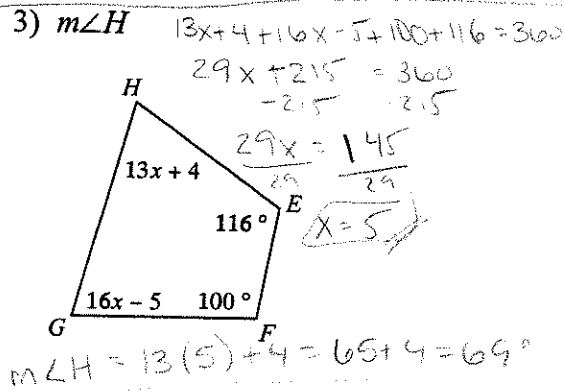 3) m∠H 13x+4+16x-5+100+116=360
29x+215 = 360
-215 -215
29x = 145
29 29
x=5
H
13x + 4
E
116°
16x – 5 100°
G
F
m∠H = 13(5)+4=65+4=69°